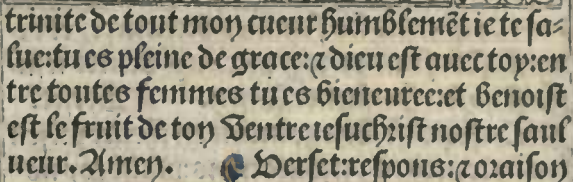 trinite de tout mon cueur humblemēt ie te sa⸗
lue:tu es pleine de grace:⁊ dieu est auec toy:en
tre toutes femmes tu es bieneuree:et benoist
est le fruit de ton ventre iesuchrist nostre saul
ueur. Amen. Verset:respons:⁊ oraison